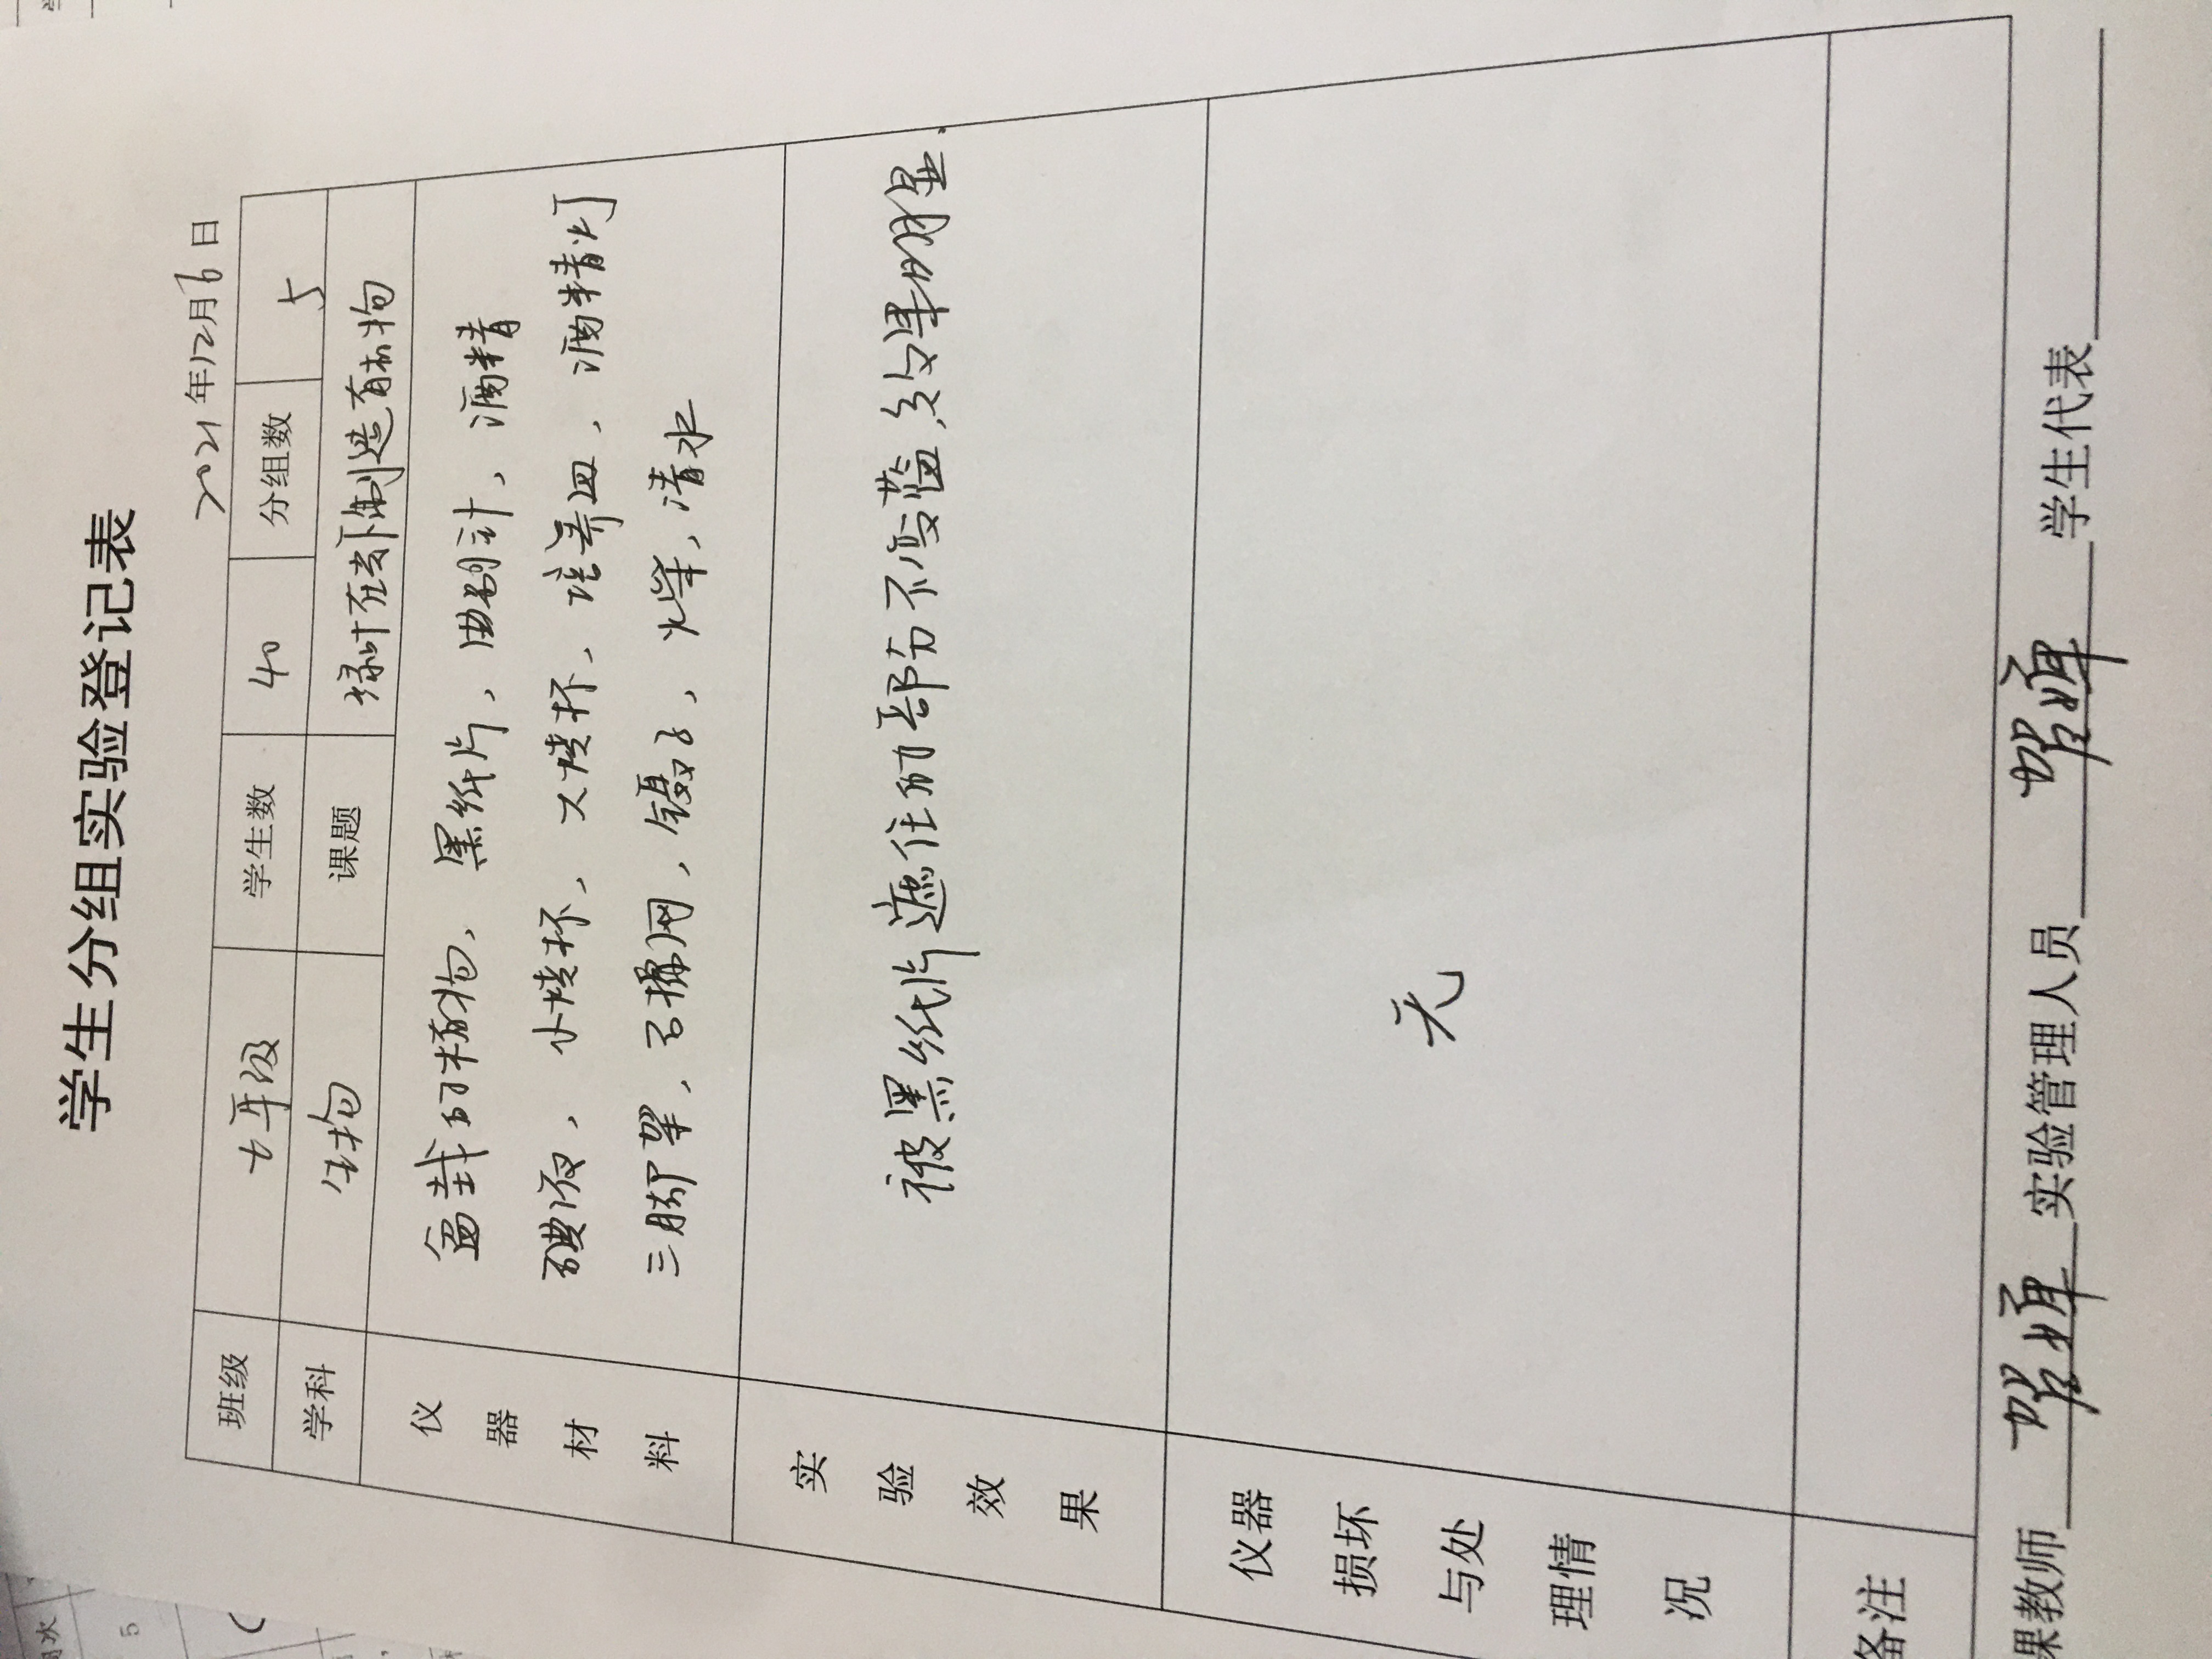 学生分组实验登记表
2021年12月6日
班级 七年级 学生数 40 分组数 5
学科 生物 课题 绿叶在光下制造有机物
仪器材料
盆栽的植物、黑纸片、曲别针、酒精
碘液、小烧杯、大烧杯、培养皿、酒精灯
三脚架、石棉网、镊子、火柴、清水
实验效果
被黑纸片遮住的部分不变蓝,效果明显.
仪器损坏与处理情况
无
备注
课教师 实验管理人员 学生代表